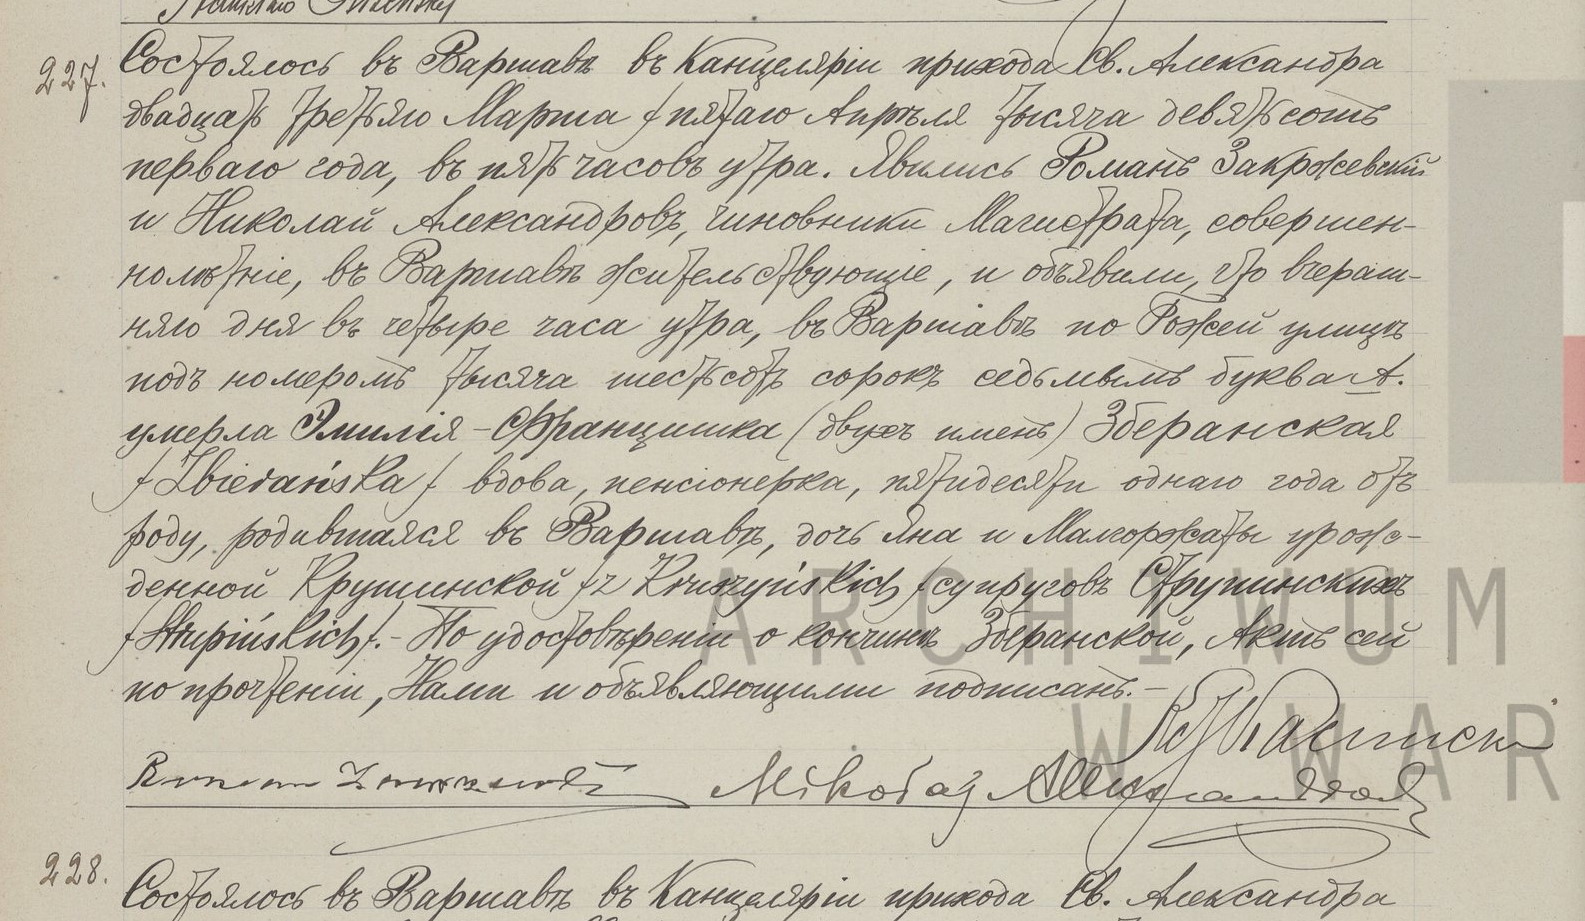 227.
Состоялось въ Варшавѣ въ Канцеляріи прихода Св. Александра
двадцать третьяго Марта / пятаго Апрѣля тысяча девятьсотъ
перваго года, въ пять часовъ утра. Явились Романъ Закржевскій
и Николай Александровъ, чиновники Магистрата, совершен-
нолѣтніе, въ Варшавѣ жительствующіе, и объявили, что вчераш-
няго дня въ четыре часа утра, въ Варшавѣ по Рожей улицѣ
подъ номеромъ тысяча шестьсотъ сорокъ седьмымъ буква А.
умерла Эмилія-Францишка (двухъ именъ) Збѣранская
/Zbierańska/ вдова, пенсіонерка, пятидесяти одного года отъ
роду, родившаяся въ Варшавѣ, дочь Яна и Малгоржаты урож-
денной Крушинской /z Kruszyńskich/ супруговъ Струпинскихъ
/Strupińskich/.- По удостовѣреніи о кончинѣ Збѣранской, Актъ сей
по прочтеніи, Нами и объявляющими подписанъ.-
ARCHIWUM
W WAR
228.
Состоялось въ Варшавѣ въ Канцеляріи прихода Св. Александра